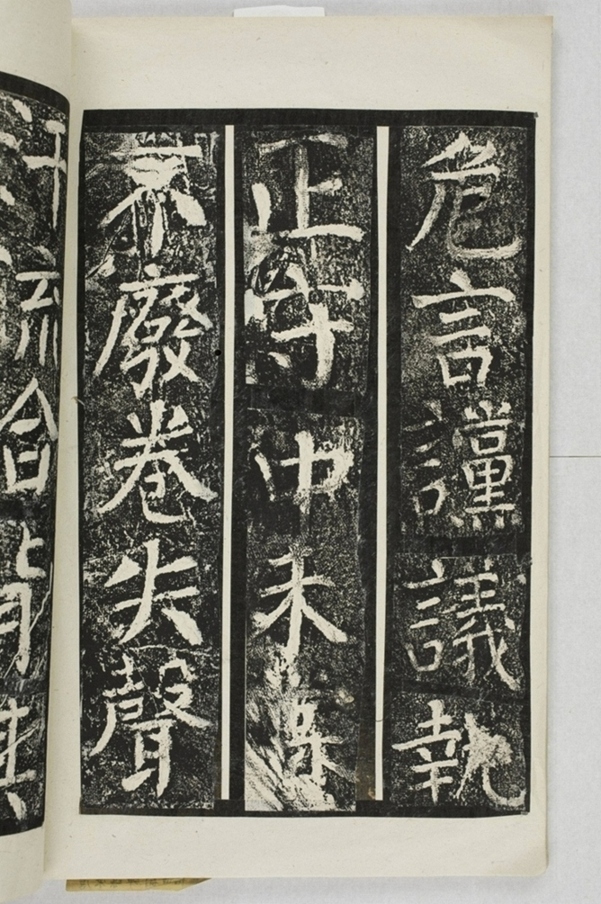 危言讜議執
正守中未
不廢卷失聲
汗流合